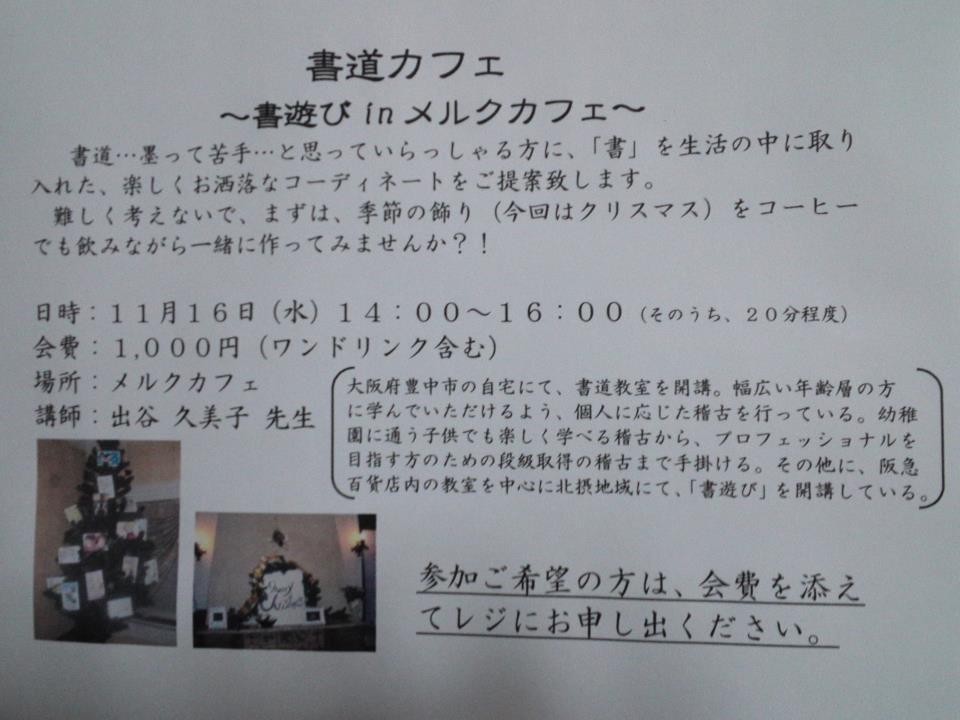 書道カフェ
~書遊び in メルクカフェ~
書道…墨って苦手…と思っていらっしゃる方に、「書」を生活の中に取り
入れた、楽しくお洒落なコーディネートをご提案致します。
難しく考えないで、まずは、季節の飾り(今回はクリスマス)をコーヒー
でも飲みながら一緒に作ってみませんか?!
日時:11月16日(水)14:00~16:00(そのうち、20分程度)
会費:1,000円(ワンドリンク含む)
場所:メルクカフェ
講師:出谷 久美子 先生
大阪府豊中市の自宅にて、書道教室を開講。幅広い年齢層の方
に学んでいただけるよう、個人に応じた稽古を行っている。幼稚
園に通う子供でも楽しく学べる稽古から、プロフェッショナルを
目指す方のための段級取得の稽古まで手掛ける。その他に、阪急
百貨店内の教室を中心に北摂地域にて、「書遊び」を開講している。
参加ご希望の方は、会費を添え
てレジにお申し出ください。